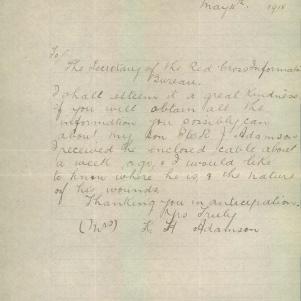 May 4th. 1918
To
The Secretary of the Red Cross Information
Bureau.
I shall esteem it a great kindness
if you will obtain all the
information you possibly can
about my son J. Adamson.
I received the enclosed cable about
a week ago, & I would like
to know where he is, & the nature
of his wounds.
Thanking you in anticipation.
Yrs Truly
(Mrs) H Adamson